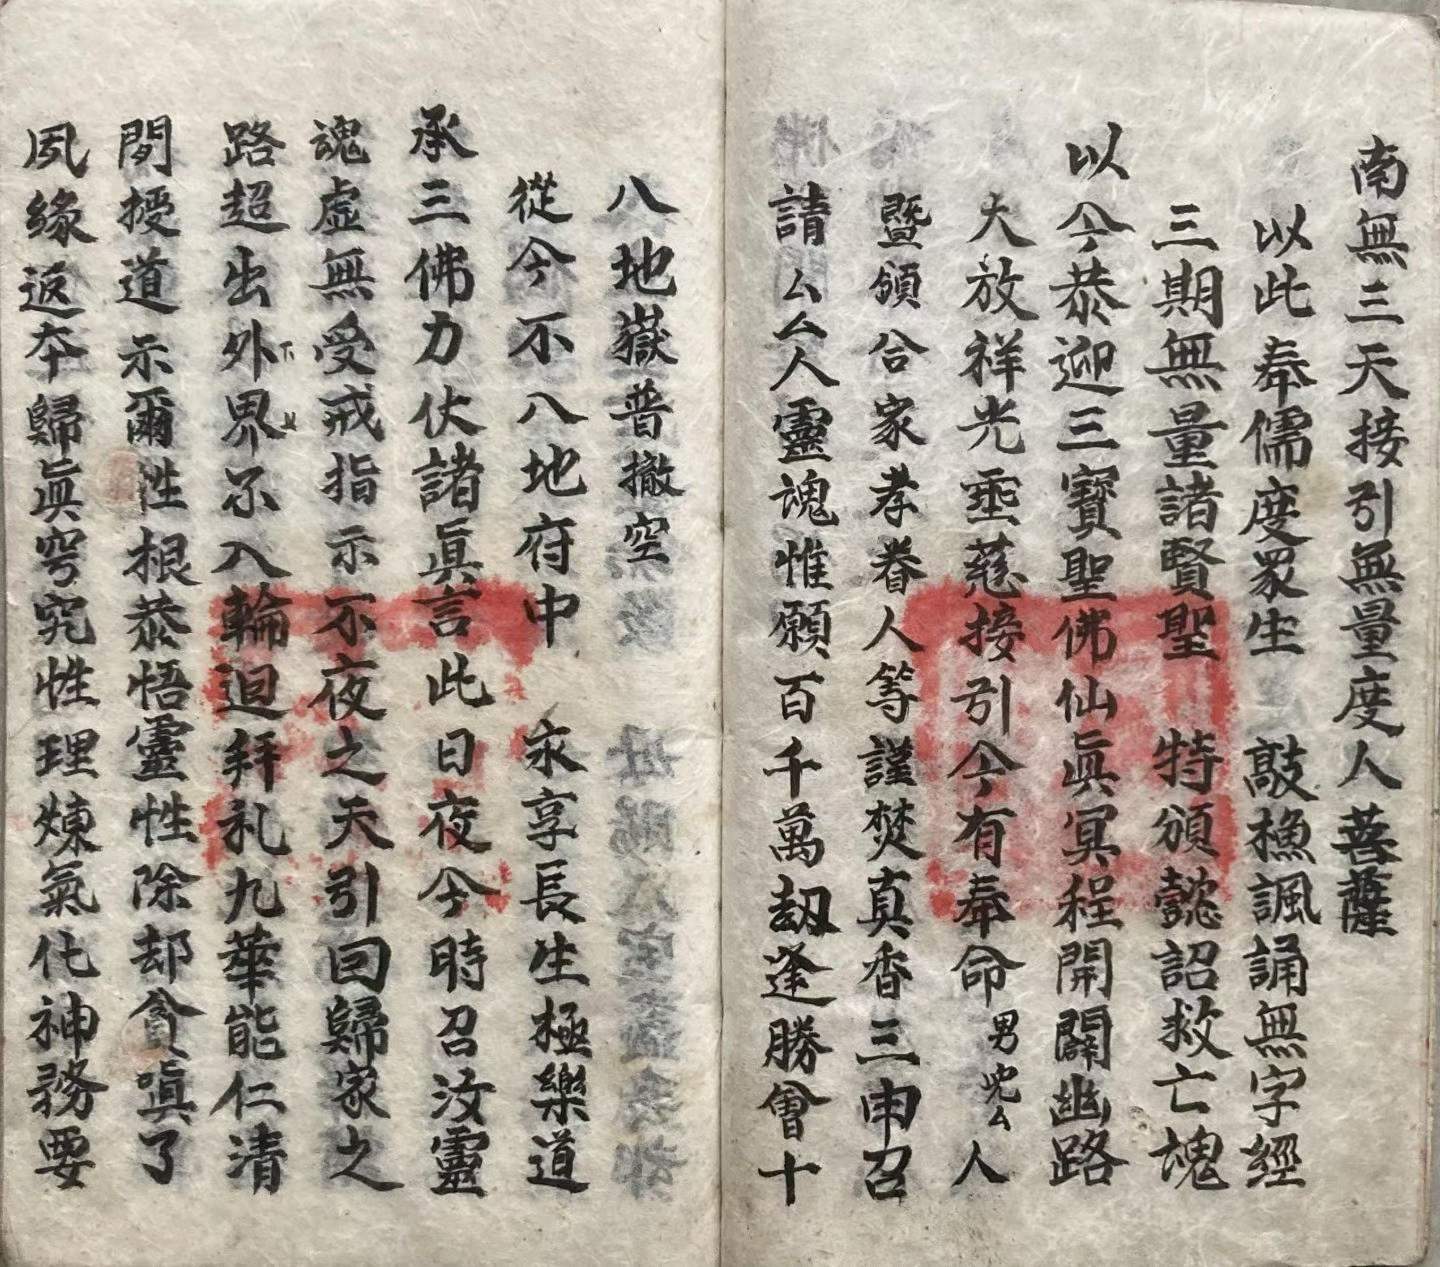 南無三天接引無量度人菩薩
以此奉儒度眾生　敲漁諷誦無字經
三期無量諸賢聖　特頒懿詔救亡魂
以今恭迎三寶聖佛仙眞冥程開闢幽路
大放祥光垂慈接引今有奉命男兇么人
暨領合家孝眷人等謹焚真香三申召
請么么人靈魂惟願百千萬劫逢勝會十
八地嶽普撤空
從今不八地府中　永享長生極樂道
承三佛力仗諸眞言此日夜今時召汝靈
魂虛無受戒指示不夜之天引回歸家之
路超出外界不入輪迴拜礼九華能仁清
間授道示爾性根恭悟靈性除却貪嗔了
夙緣返本歸眞窮究性理煉氣化神務要